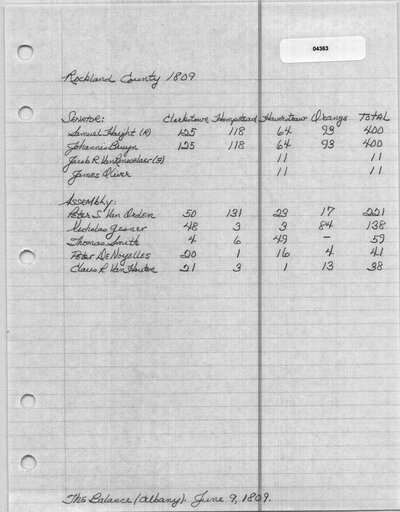 04363
Rockland County 1809
SENATOR: Clarkstown Hempstead Haverstraw Orange TOTAL
Samuel Haight (R) 125 118 64 93 400
Johannis Bruyn 125 118 64 93 400
Jacob R. Van Rensselaer (F) 11 11
James Oliver 11 11
ASSEMBLY:
Peter S. Van Orden 50 131 23 17 221
Nicholas Gesner 48 3 3 84 138
Thomas Smith 4 6 49 - 59
Peter DeNoyelles 20 1 16 4 41
Claus R. Van Houten 21 3 1 13 38
The Balance (Albany). June 9, 1809.